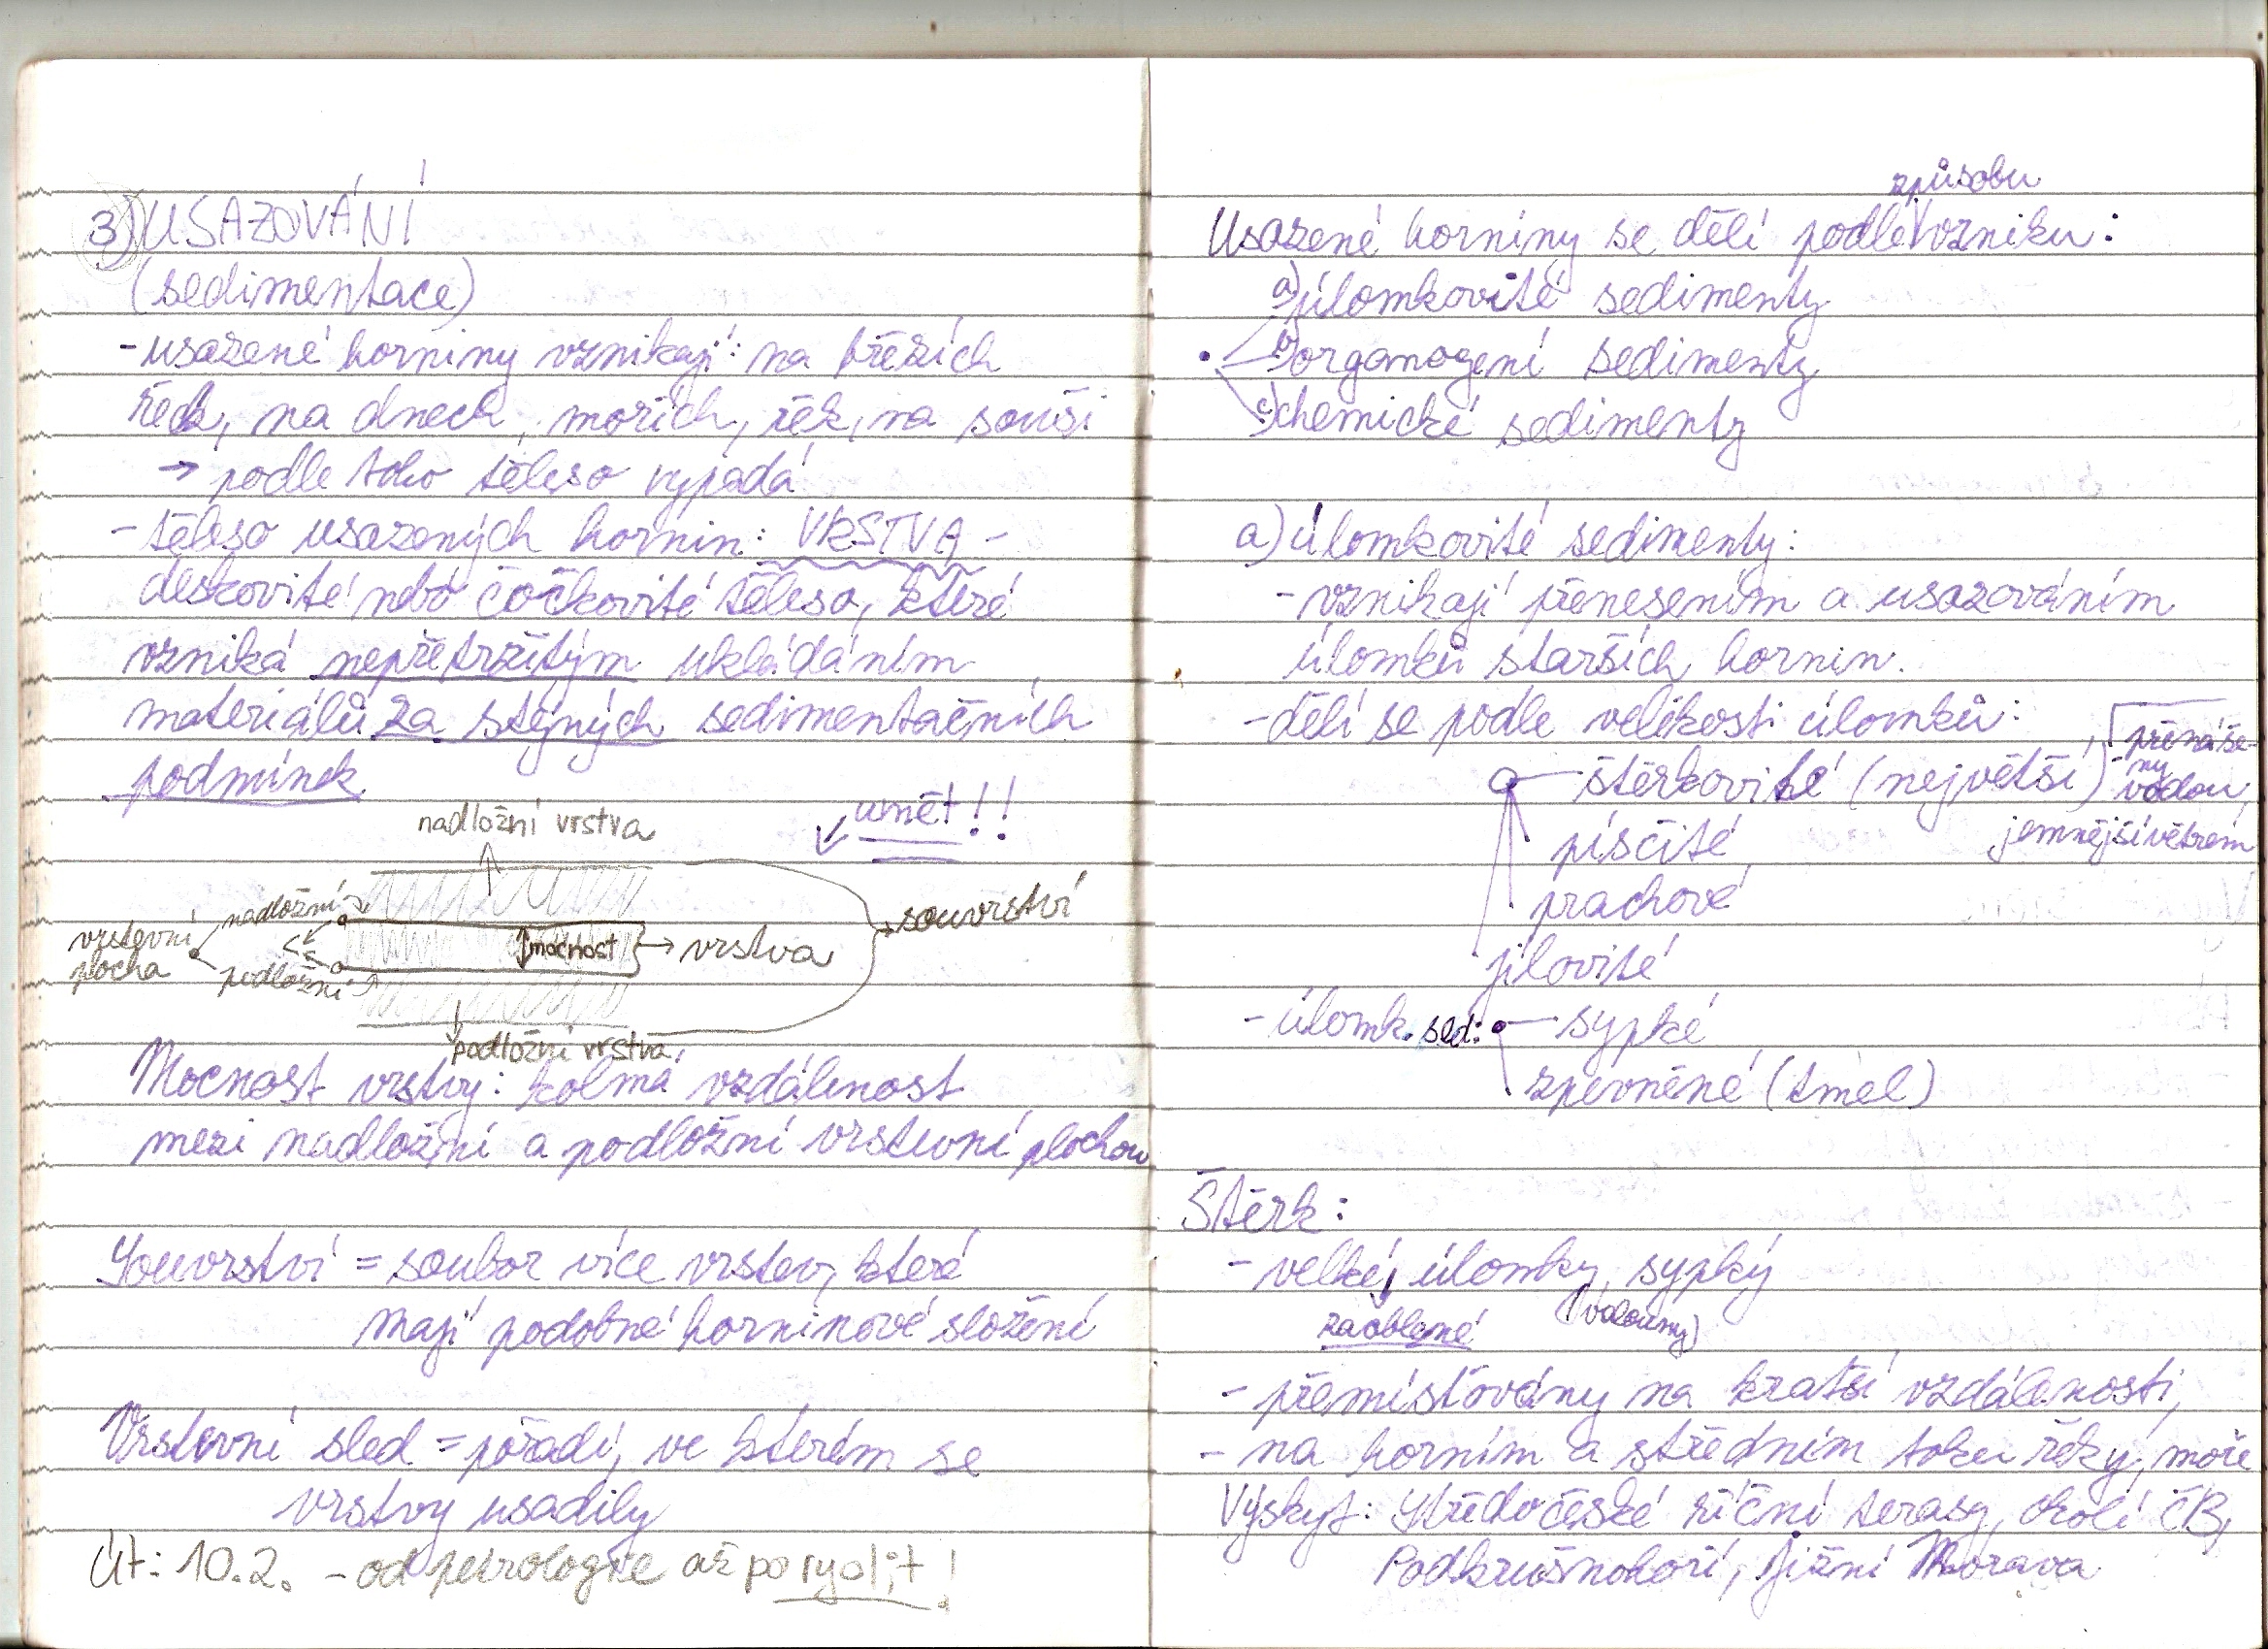 3) USAZOVÁNÍ
(sedimentace)
- usazené horniny vznikají: na březích
řek, na dnech, mořích, řek, na souši
→ podle toho těleso vypadá
- těleso usazených hornin: VRSTVA -
deskovité nebo čočkovité těleso, které
vzniká nepřetržitým ukládáním
materiálů za stejných sedimentačních
podmínek
umět!!
nadložní vrstva
nadložní
vrstevní
plocha
podložní
mocnost
→ vrstva
souvrství
podložní vrstva
Mocnost vrstvy: kolmá vzdálenost
mezi nadložní a podložní vrstevní plochou
Souvrství = soubor více vrstev, které
mají podobné horninové složení
Vrstevní sled = pořadí, ve kterém se
vrstvy usadily
Út: 10.2. - od petrologie až po ryolit!
způsobu
Usazené horniny se dělí podle vzniku:
a) úlomkovité sedimenty
b) organogení sedimenty
c) chemické sedimenty
a) úlomkovité sedimenty:
- vznikají přenesením a usazováním
úlomků starších hornin.
- dělí se podle velikosti úlomků:
štěrkovité (největší)
přenáše-
ny
vodou,
jemnější větrem
písčité
prachové
jílovité
- úlomk. sed: sypké
zpevněné (tmel)
Štěrk:
- velké úlomky, sypký
zaoblené (valouny)
- přemísťovány na kratší vzdálenosti,
- na horním a středním toku řeky, moře
Výskyt: Středočeské říční terasy, okolí ČB,
Podkrušnohoří, Jižní Morava